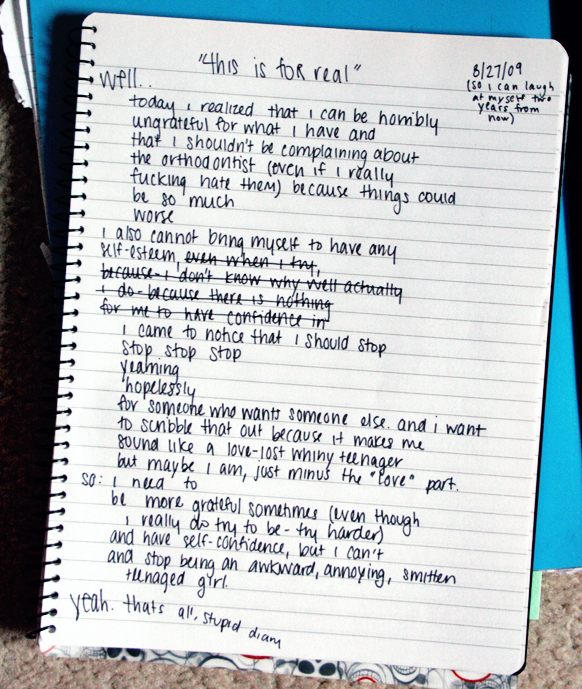 "this is for real"
8/27/09
(so i can laugh
at myself two
years from
now)
well..
today i realized that i can be horribly
ungrateful for what i have and
that i shouldn't be complaining about
the orthodontist (even if i really
fucking hate them) because things could
be so much
worse
i also cannot bring myself to have any
self-esteem, even when i try,
because- i don't know why well actually
i do- because there is nothing
for me to have confidence in
i came to notice that i should stop
stop stop stop
yearning
hopelessly
for someone who wants someone else. and i want
to scribble that out because it makes me
sound like a love-lost whiny teenager
but maybe i am, just minus the "love" part.
so: i need to
be more grateful sometimes (even though
i really do try to be- try harder)
and have self-confidence, but i can't
and stop being an awkward, annoying, smitten
teenaged girl.
yeah. thats all, stupid diary